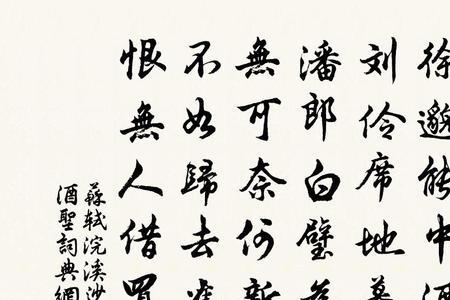 徐邈能中酒
刘伶席地幕
潘郎白璧為
無可奈何新
不如歸去
恨無人借買
蘇軾浣溪沙
酒聖詞典網